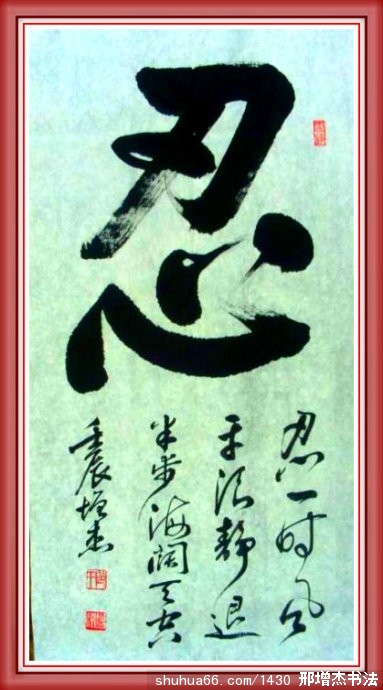 忍
忍一时风
平浪静退
半步海阔天空
壬辰增杰
shuhua66.com/1430 邢增杰书法